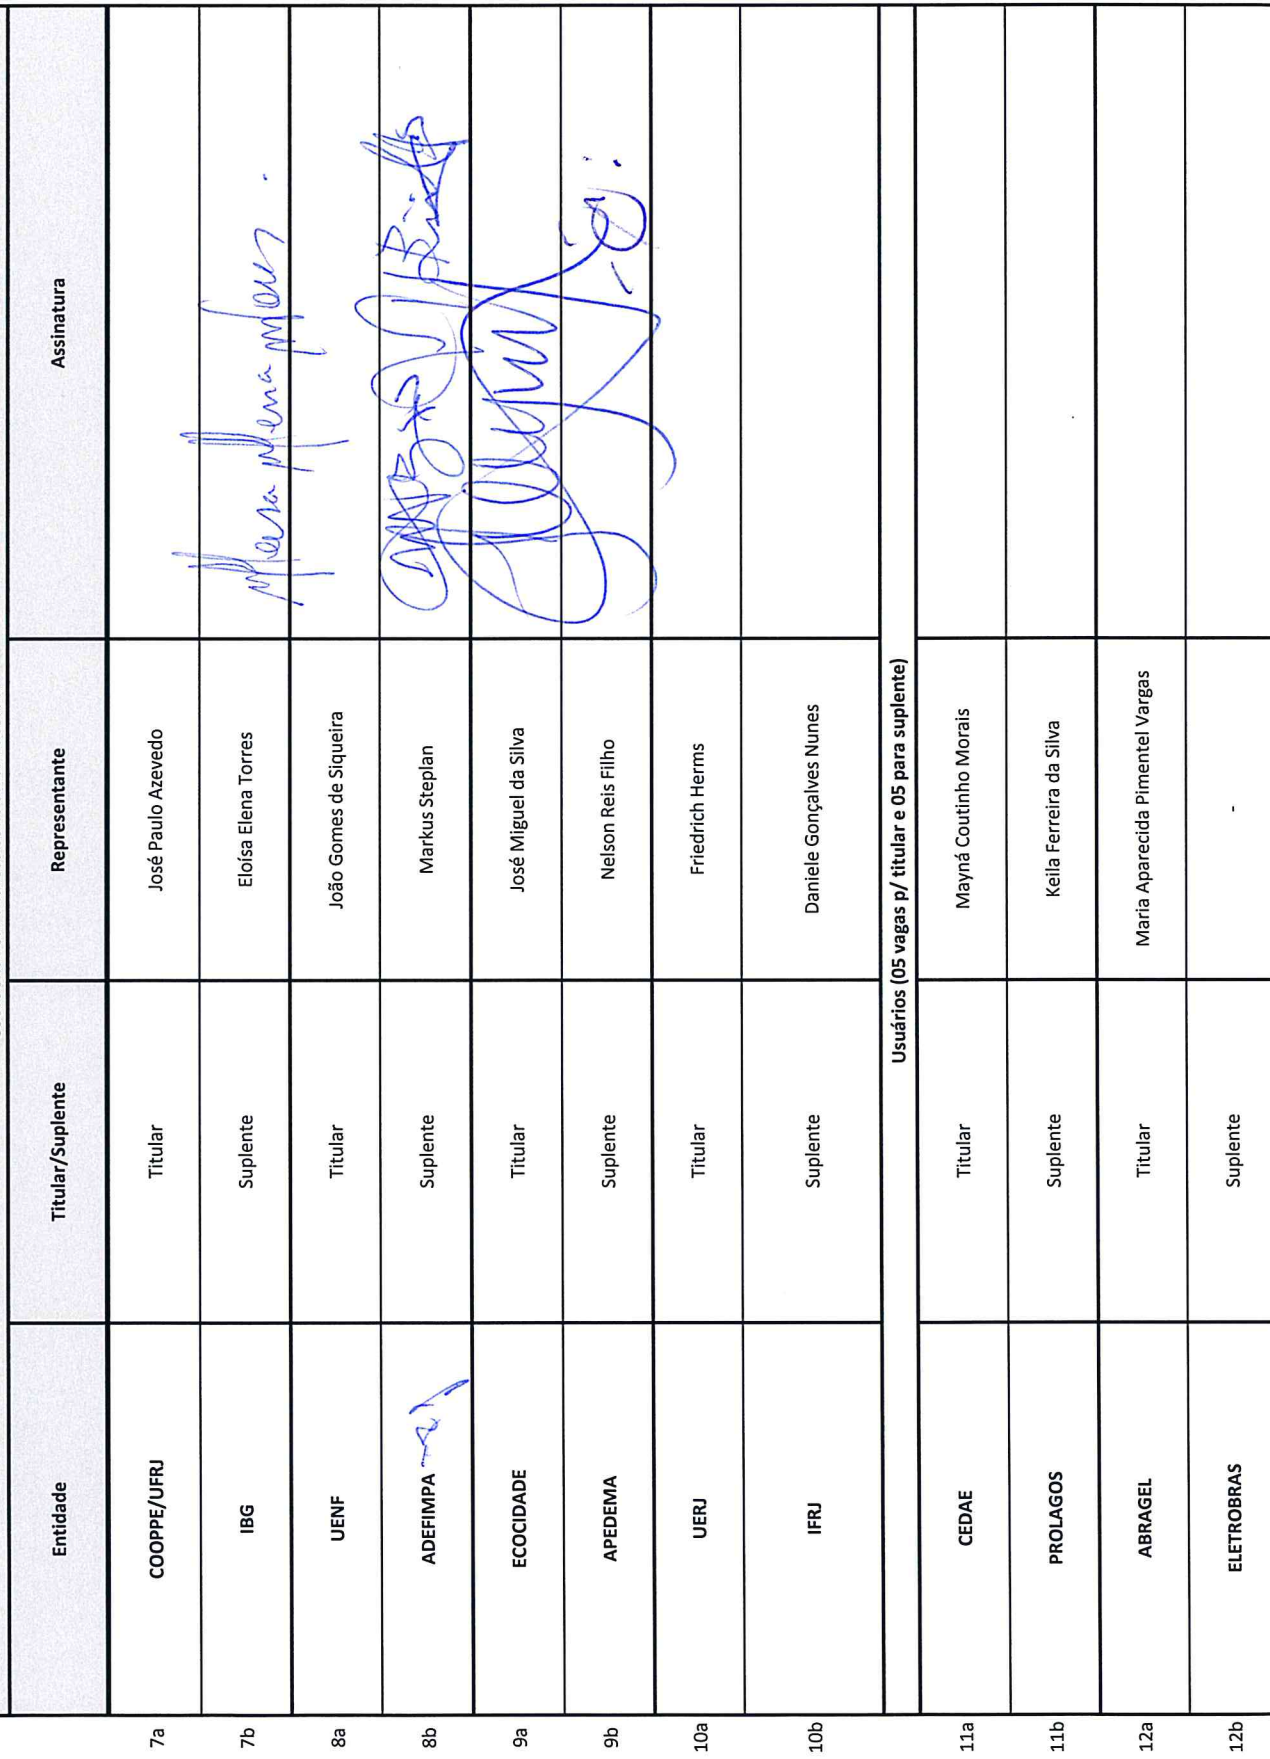 Entidade Titular/Suplente Representante Assinatura
7a COOPPE/UFRJ Titular José Paulo Azevedo
7b IBG Suplente Eloísa Elena Torres
8a UENF Titular João Gomes de Siqueira
8b ADEFIMPA Suplente Markus Steplan
9a ECOCIDADE Titular José Miguel da Silva
9b APEDEMA Suplente Nelson Reis Filho
10a UERJ Titular Friedrich Herms
10b IFRJ Suplente Daniele Gonçalves Nunes
Usuários (05 vagas p/ titular e 05 para suplente)
11a CEDAE Titular Mayná Coutinho Morais
11b PROLAGOS Suplente Keila Ferreira da Silva
12a ABRAGEL Titular Maria Aparecida Pimentel Vargas
12b ELETROBRAS Suplente -